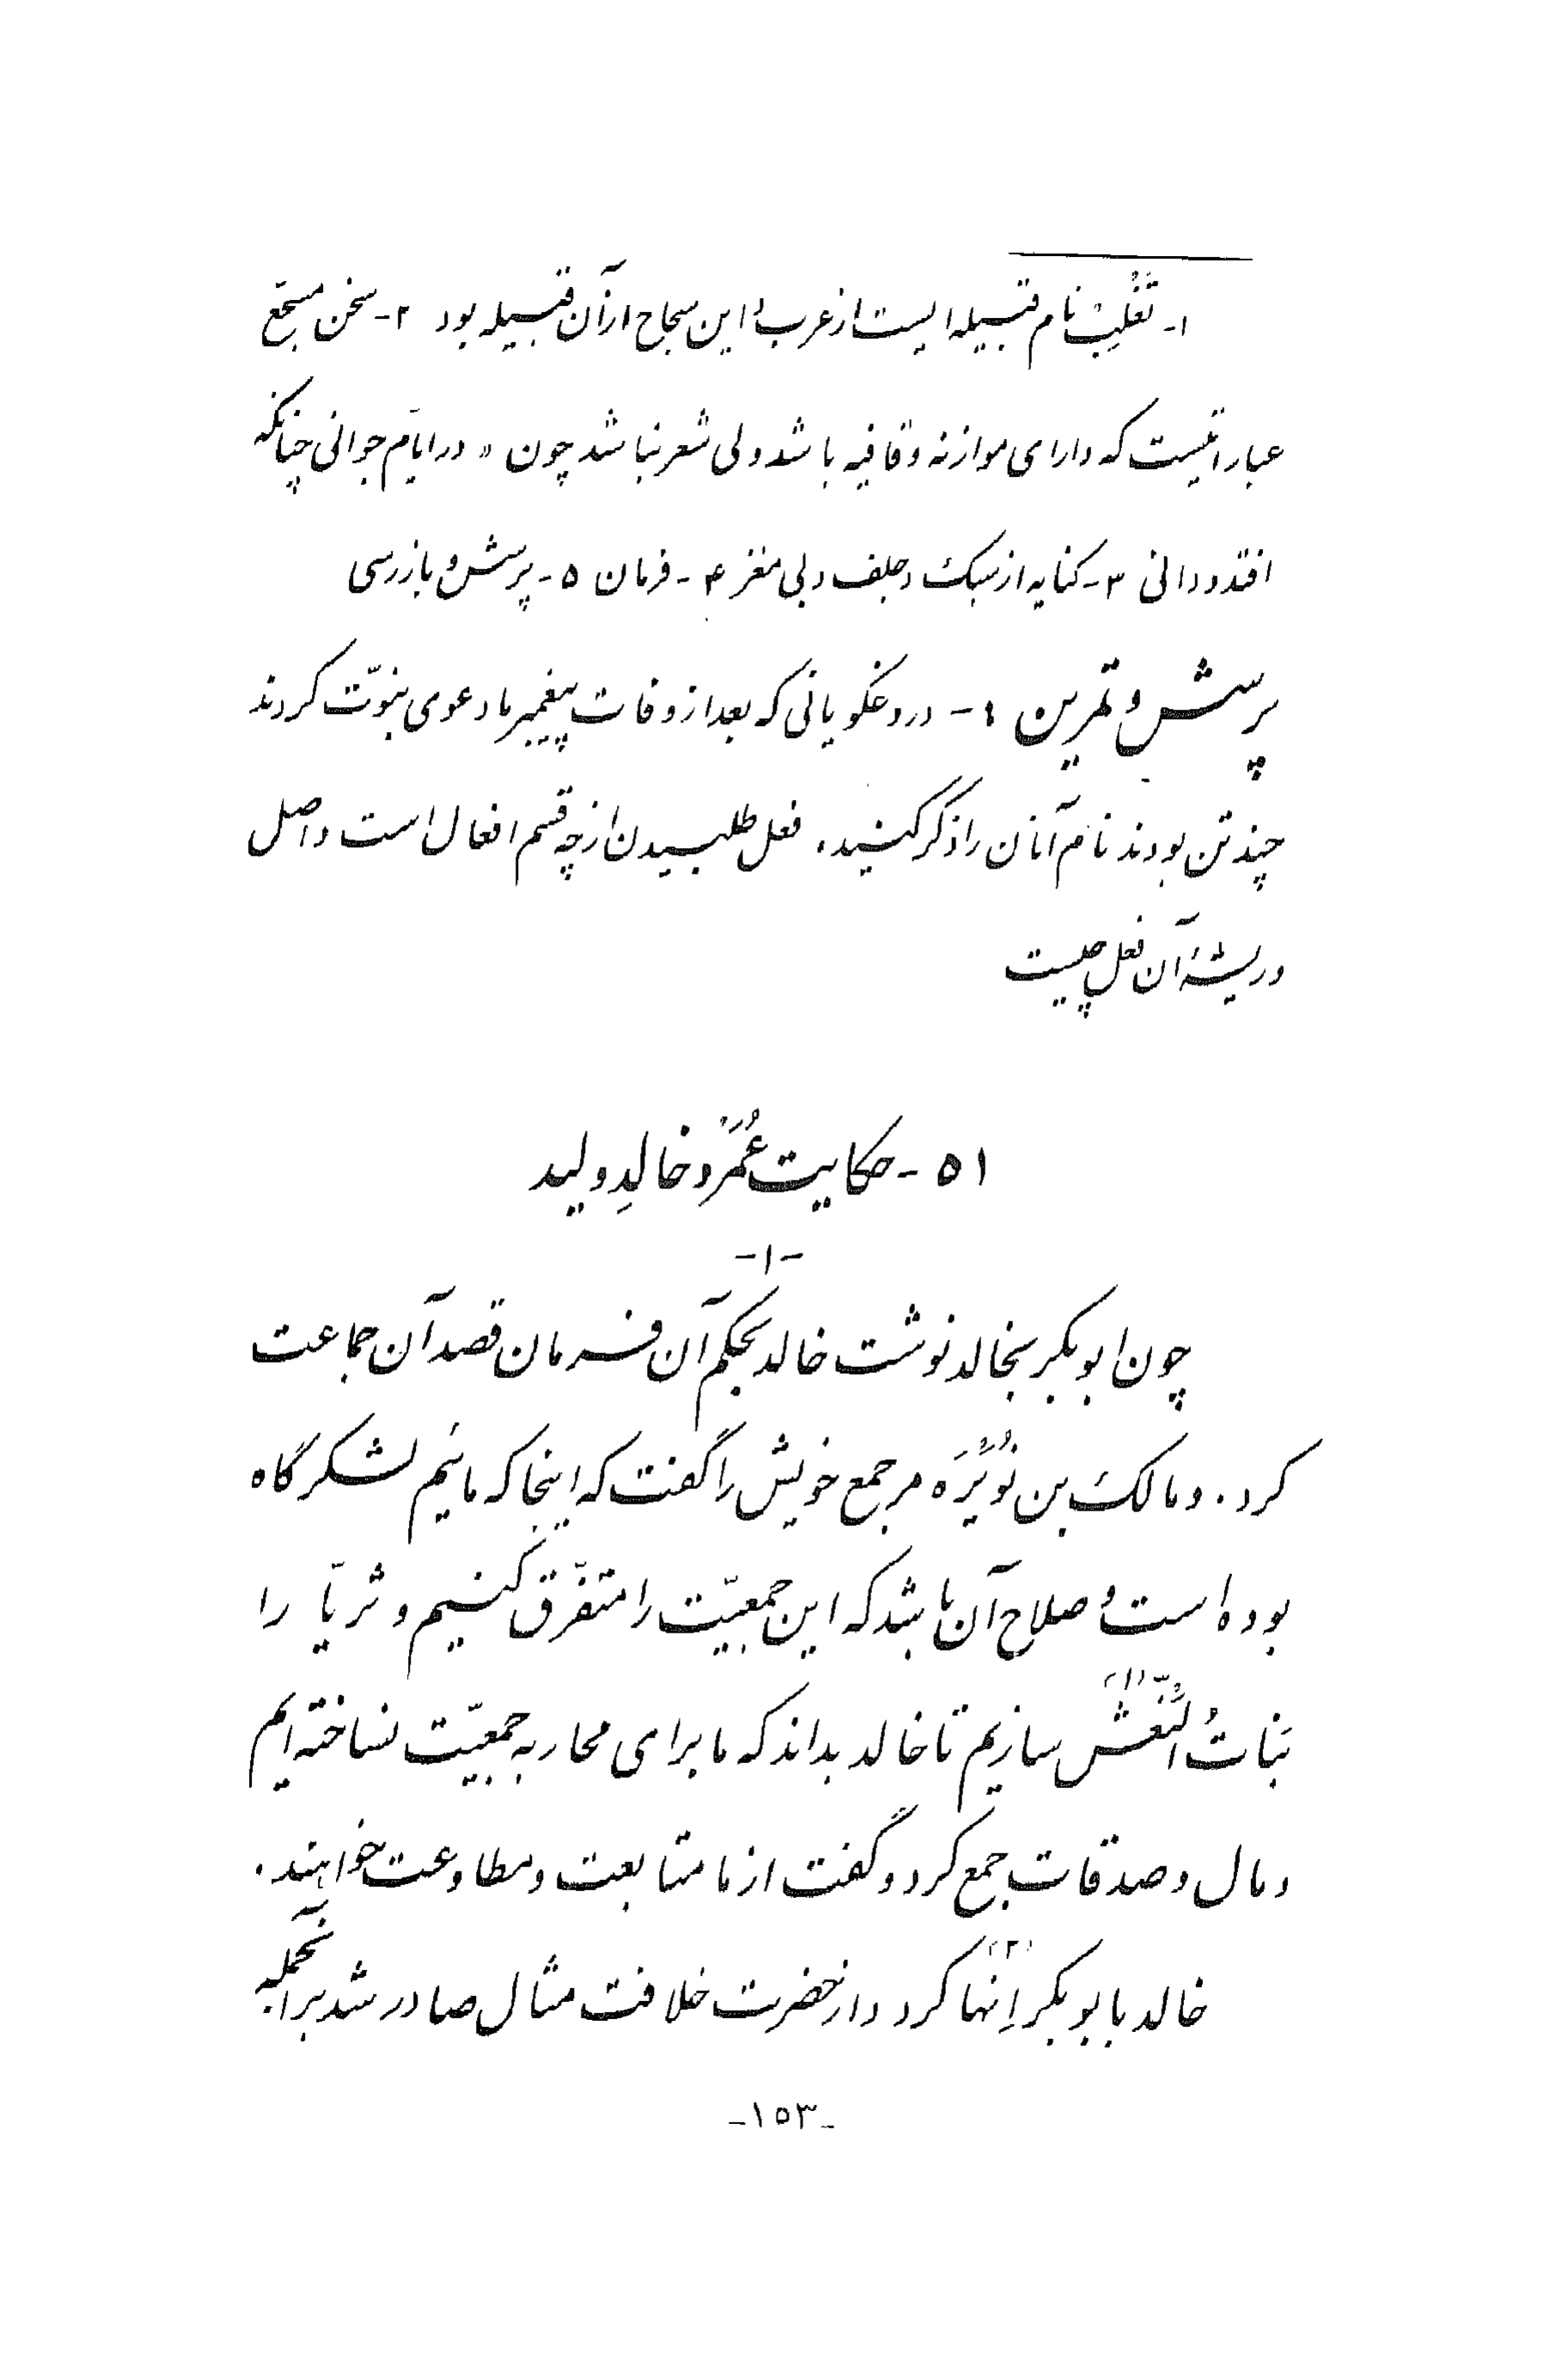 ۱- تَغْلِبْ نام قبیله ایست از عرب و این سجاح از آن قبیله بود ۲- سخن مسجّع
عباراتیست که دارای موازنه و قافیه باشد ولی شعر نباشد چون « در ایّام جوانی چنانکه
افتد و دانی ۳- کنایه از سبک و جلف و بی مغز ۴- فرمان ۵- پرسش و بازرسی
پرسش و تمرین ۱- دروغگویانی که بعد از وفات پیغمبر ما دعوی نبوّت کردند
چند تن بودند نام آنان را ذکر کنید. فعل طلبیدن از چه قسم افعال است و اصل
و ریشهٔ آن فعل چیست
۵۱- حکایت عُمَرْ و خالدِ ولید
-۱-
چون ابوبکر بخالد نوشت خالد بحکم آن فرمان قصد آن جماعت
کرد. و مالک بن نُوَیْرَه مر جمع خویش را گفت که اینجا که مائیم لشکرگاه
بوده است و صلاح آن باشد که این جمعیّت را متفرّق کنیم و ثریّا را
بَناتُ النَّعْش (۱) سازیم تا خالد بداند که ما برای محاربه جمعیّت نساخته ایم
و مال و صدقات جمع کرد و گفت از ما متابعت و مطاوعت خواهند.
خالد با بوبکر اِنها (۲) کرد و از حضرت خلافت مثال صادر شد بر آنجمله
-۱۵۳-